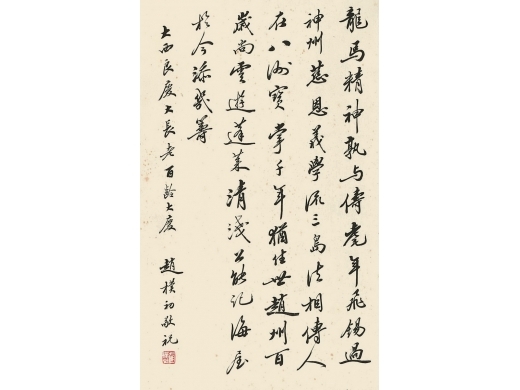 龍馬精神孰与儔虎年飛錫過
神州慈恩義學流三島法相傳人
在八洲寶掌千年猶住世趙州百
歲尚雲遊蓬萊清淺公能記海屋
於今添幾籌
大西良慶大長老百齡大慶
趙樸初敬祝